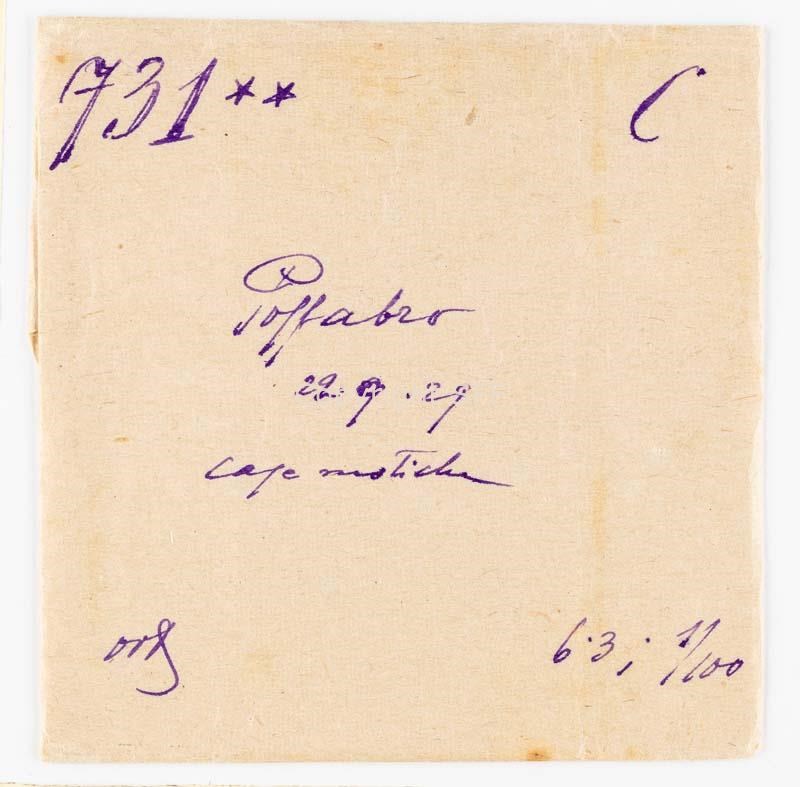 731** C
Poffabro
22.9.29
case rustiche
ort
6.3; 1/100